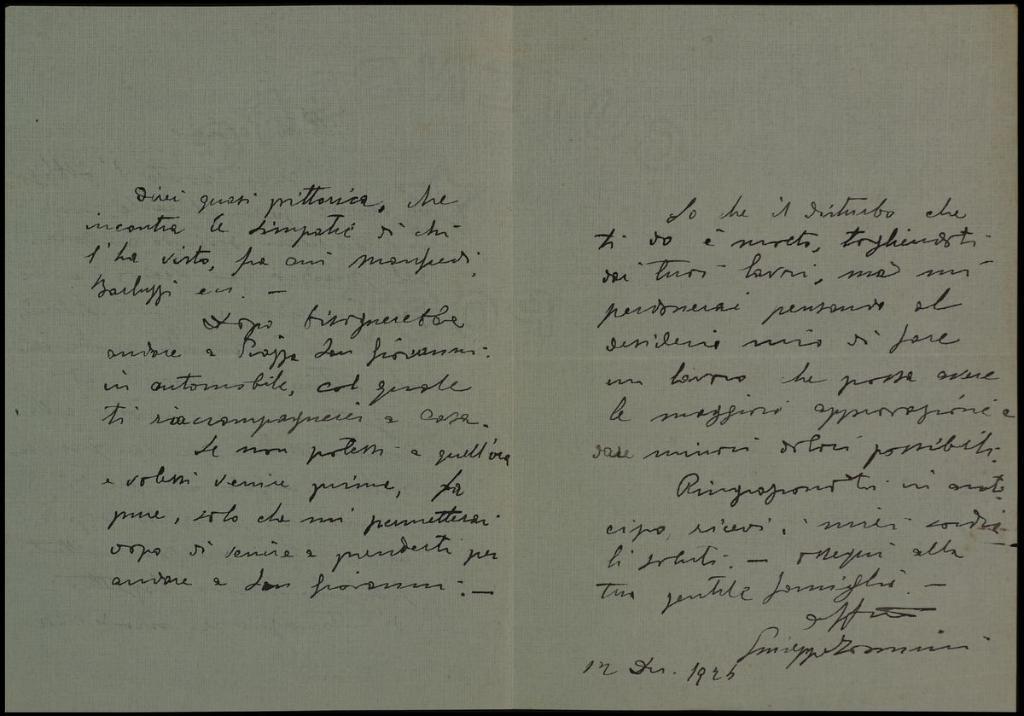 Direi quasi pittorica, che
incontra le simpatie di chi
l'ha visto, fra cui Manfredi,
Barluzzi ecc. —
Dopo, bisognerebbe
andare a Piazza San Giovanni.
in automobile, col quale
ti riaccompagnerei a casa.
Se non potessi a quell'ora
e volessi venire prima, fa
pure, solo che mi permetterai
dopo di venire a prenderti per
andare a San Giovanni. —
So che il disturbo che
ti do è molto, togliendoti
dai tuoi lavori, ma mi
perdonerai pensando al
desiderio mio di fare
un lavoro che possa avere
le maggiori approvazioni e
dare minori dolori possibili.
Ringraziandoti in anti
cipo, ricevi i miei cordia
li saluti. — ossequi alla
tua gentile famiglia —
aff
Giuseppe
12 Dic. 1925